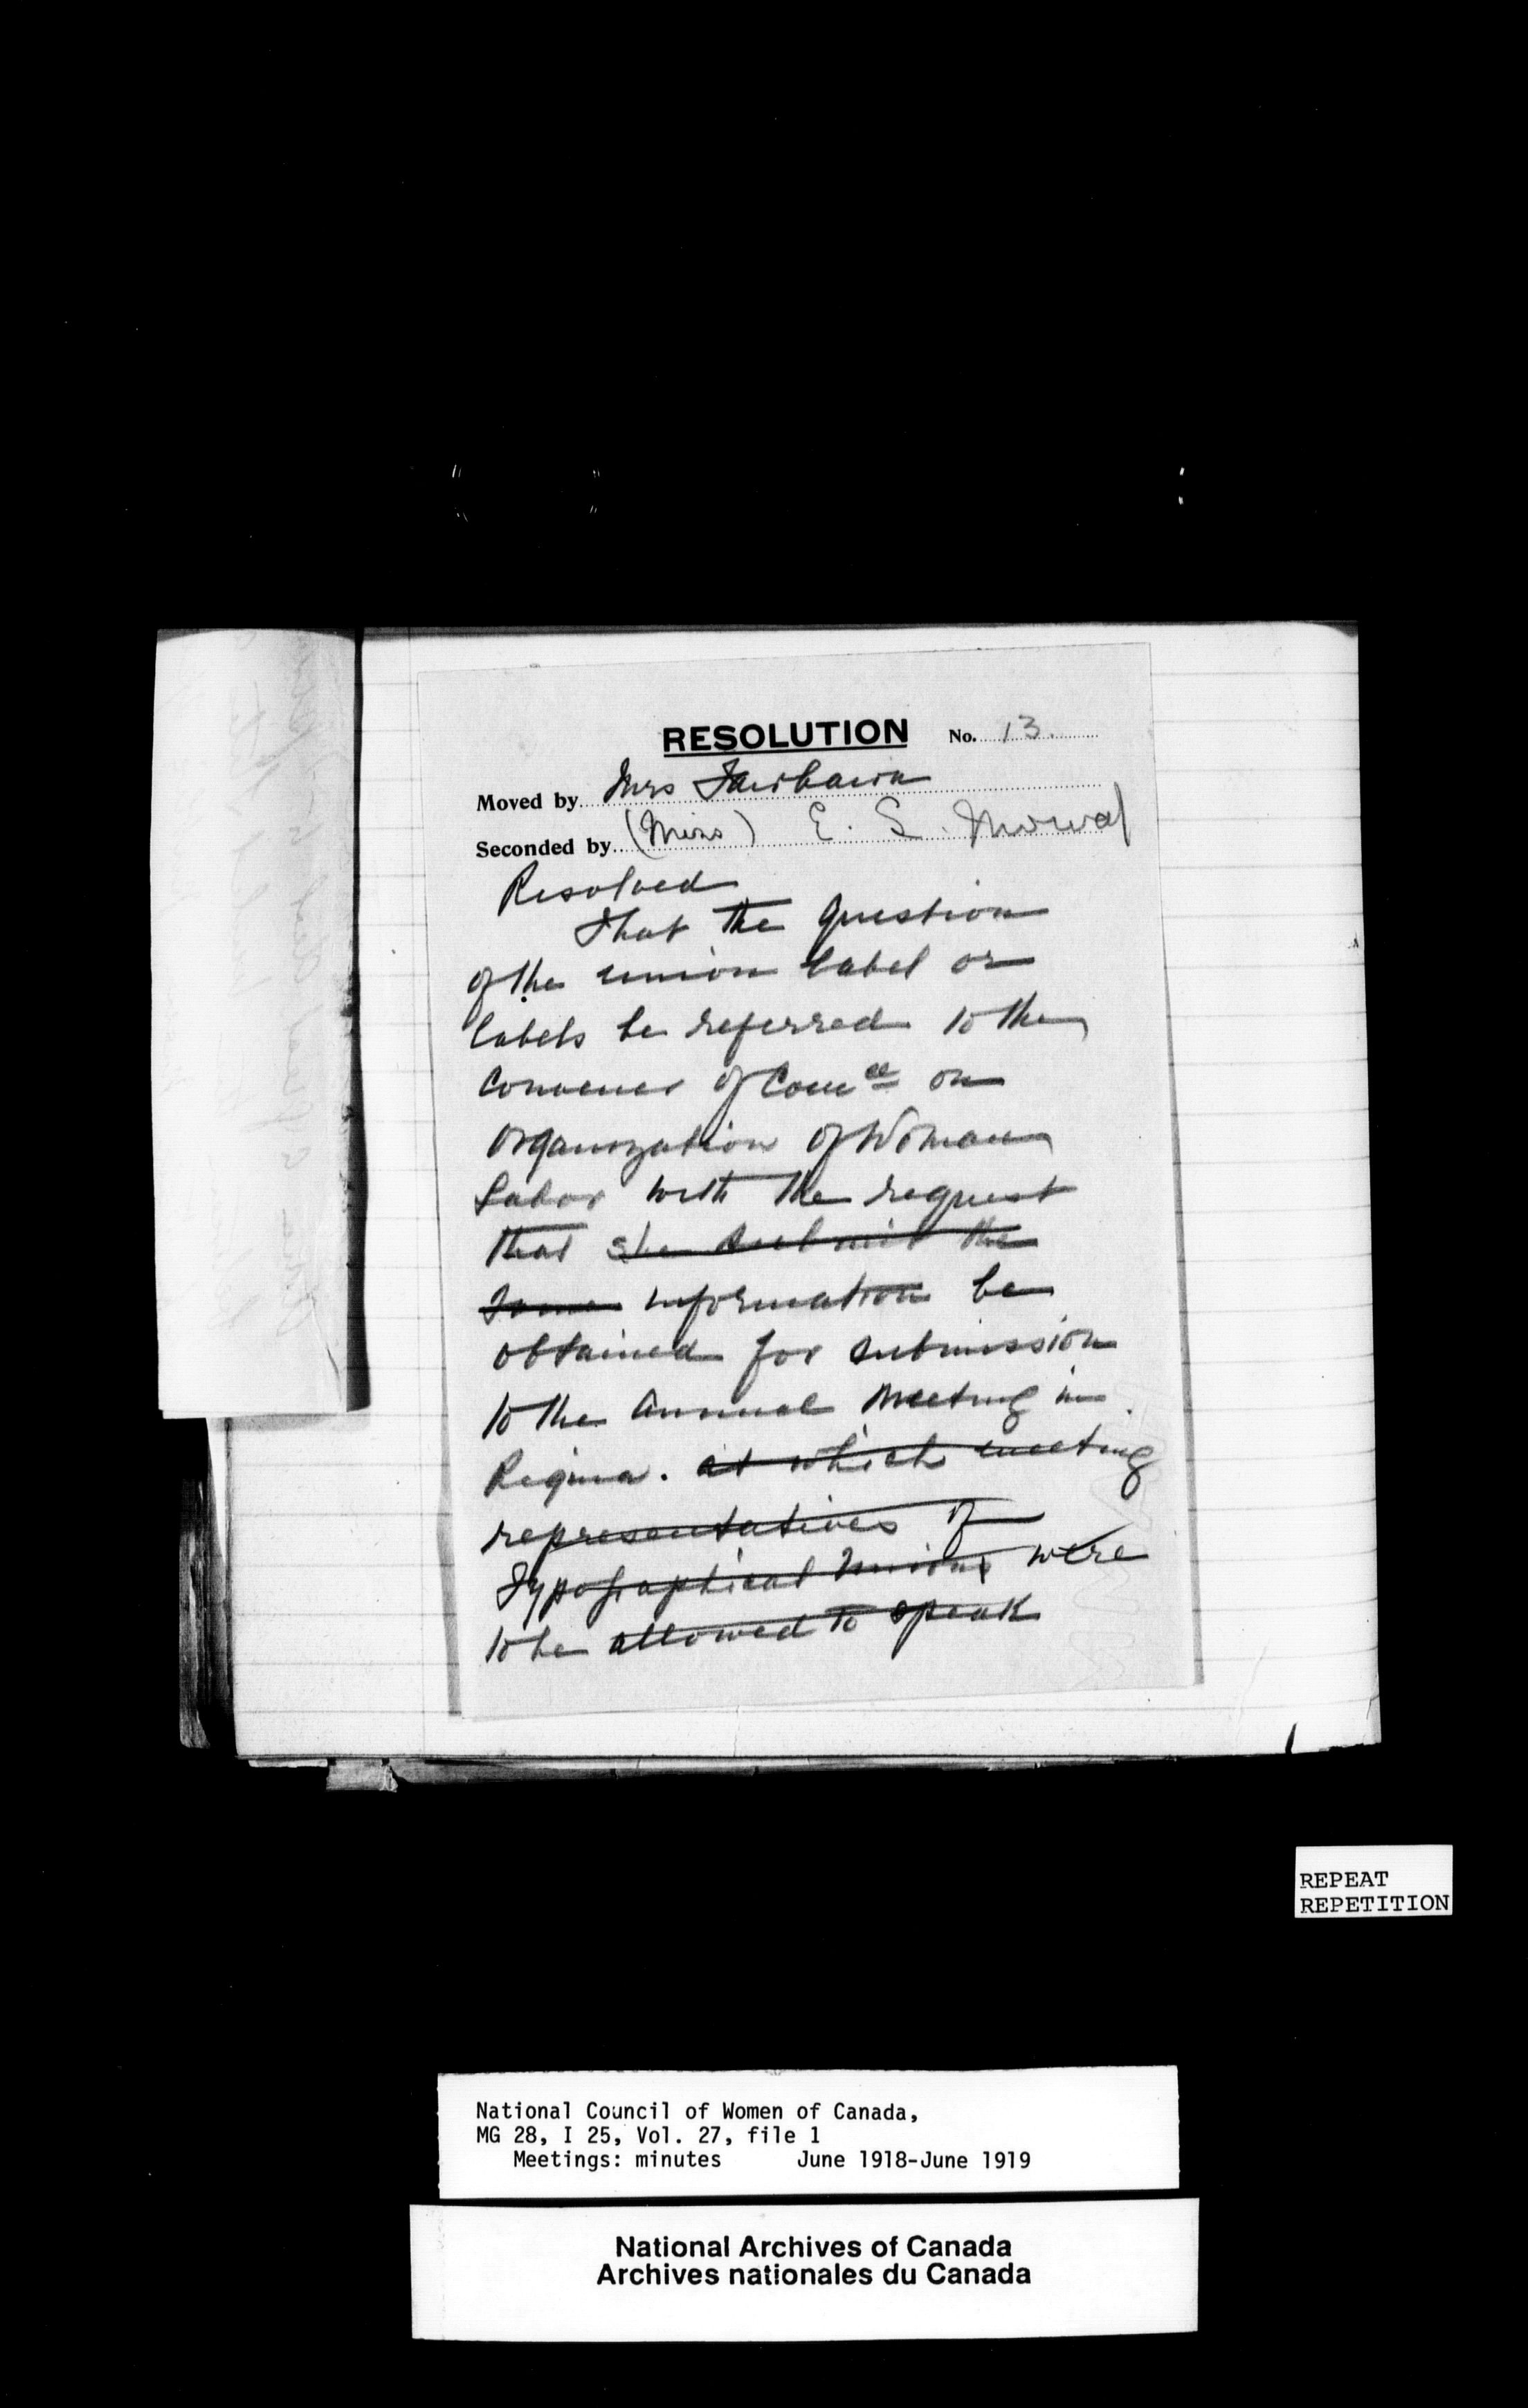 RESOLUTION No. 13.
Moved by Mrs Fairbairn
Seconded by (Miss) E. S. Mowat
Resolved
That the question
of the union label or
labels be referred to the
Convener of Comee on
organization of Woman
Labor with the request
that she submit the
same information be
obtained for submission
to the annual meeting in
Regina. at which meeting
representatives of
Typographical Unions were
to be allowed to speak
REPEAT
REPETITION
National Council of Women of Canada,
MG 28, I 25, Vol. 27, file 1
Meetings: minutes June 1918-June 1919
National Archives of Canada
Archives nationales du Canada